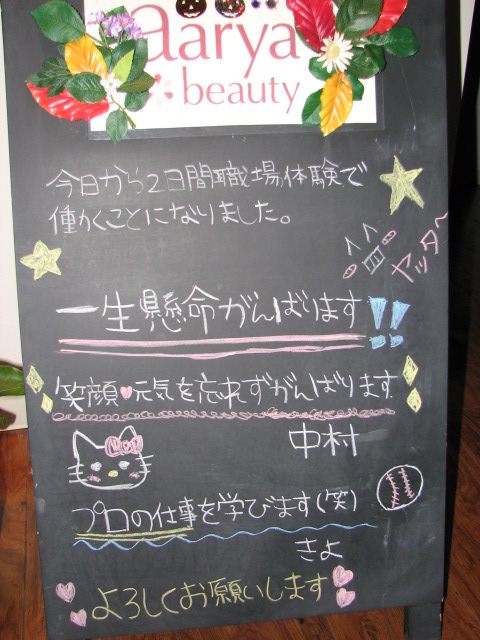 aarya
beauty
今日から2日間職場体験で
働くことになりました。
ヤッター
一生懸命がんばります!!
笑顔♥元気を忘れずがんばります
中村
プロの仕事を学びます(笑)
きよ
よろしくお願いします